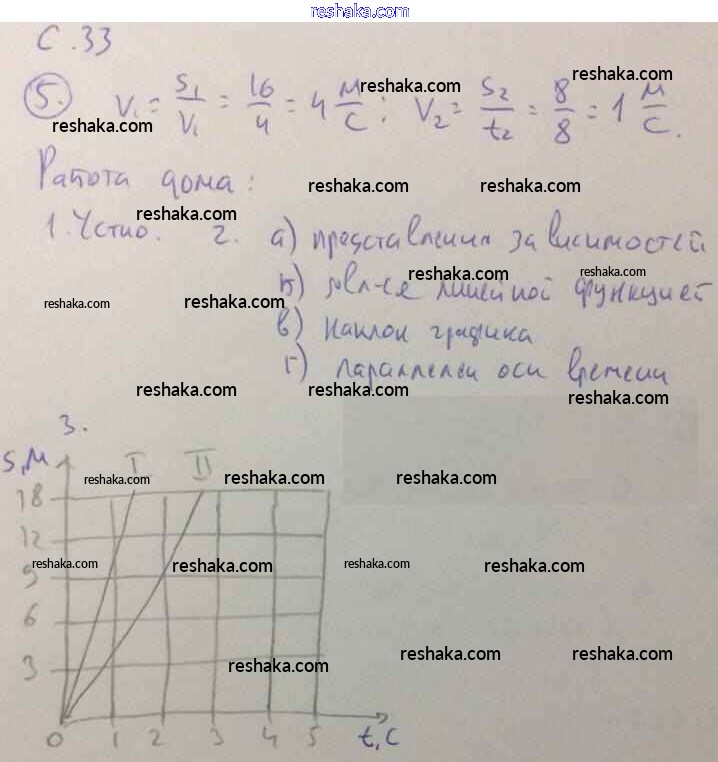 reshaka.com
С. 33
5. V₁ = S₁/V₁ = 16/4 = 4 м/с; V₂ = S₂/t₂ = 8/8 = 1 м/с.
reshaka.com reshaka.com reshaka.com
Работа дома:
reshaka.com reshaka.com
1. Устно. 2. а) представления зависимостей
reshaka.com
б) явл-ся линейной функцией
reshaka.com reshaka.com
reshaka.com reshaka.com
в) наклон графика
г) параллелен оси времени
reshaka.com reshaka.com reshaka.com
3.
S, м I II
reshaka.com reshaka.com reshaka.com
18
12
reshaka.com reshaka.com reshaka.com reshaka.com
9
6
reshaka.com reshaka.com reshaka.com
3
0 1 2 3 4 5 t, с